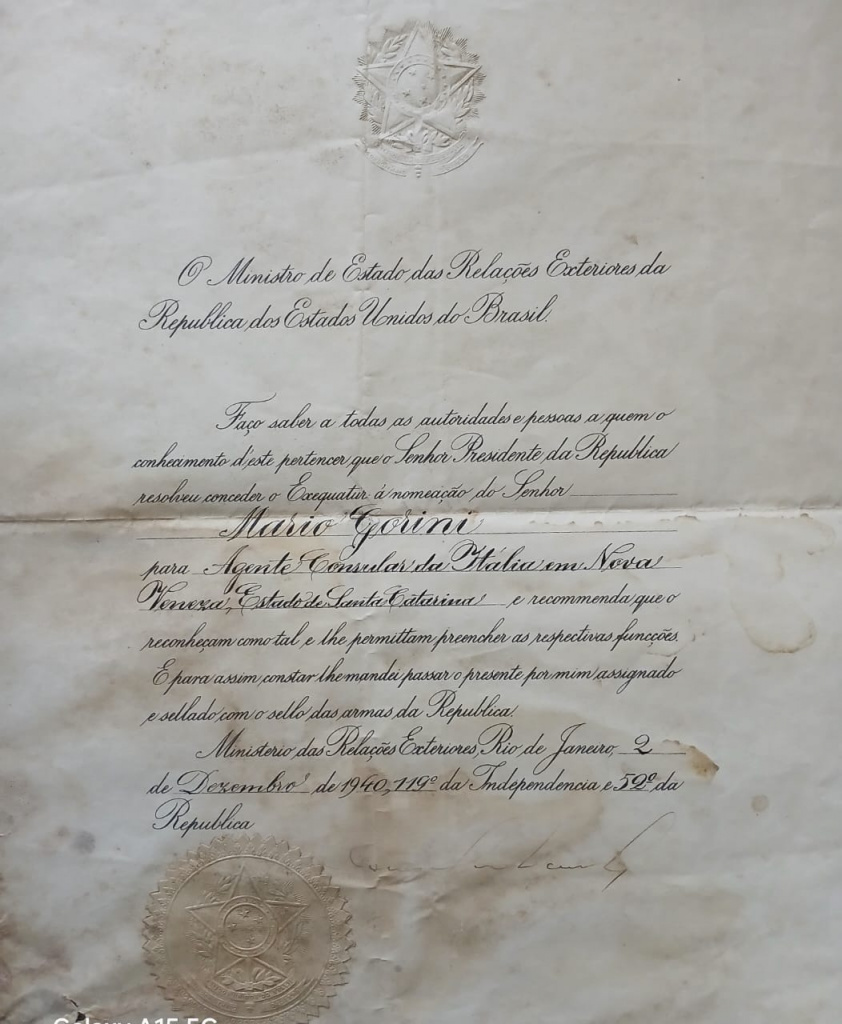 O Ministro de Estado das Relações Exteriores da
Republica dos Estados Unidos do Brasil.
Faço saber a todas as autoridades e pessoas a quem o
conhecimento d'este pertencer, que o Senhor Presidente da Republica
resolveu conceder o Exequatur á nomeação do Senhor
Mario Gorini
para Agente Consular da Itália em Nova
Veneza, Estado de Santa Catarina e recommenda que o
reconheçam como tal e lhe permittam preencher as respectivas funcções.
E para assim constar lhe mandei passar o presente por mim assignado
e sellado com o sello das armas da Republica.
Ministerio das Relações Exteriores, Rio de Janeiro, 2
de Dezembro de 1940, 119º da Independencia e 52º da
Republica
Galaxy A15 5G